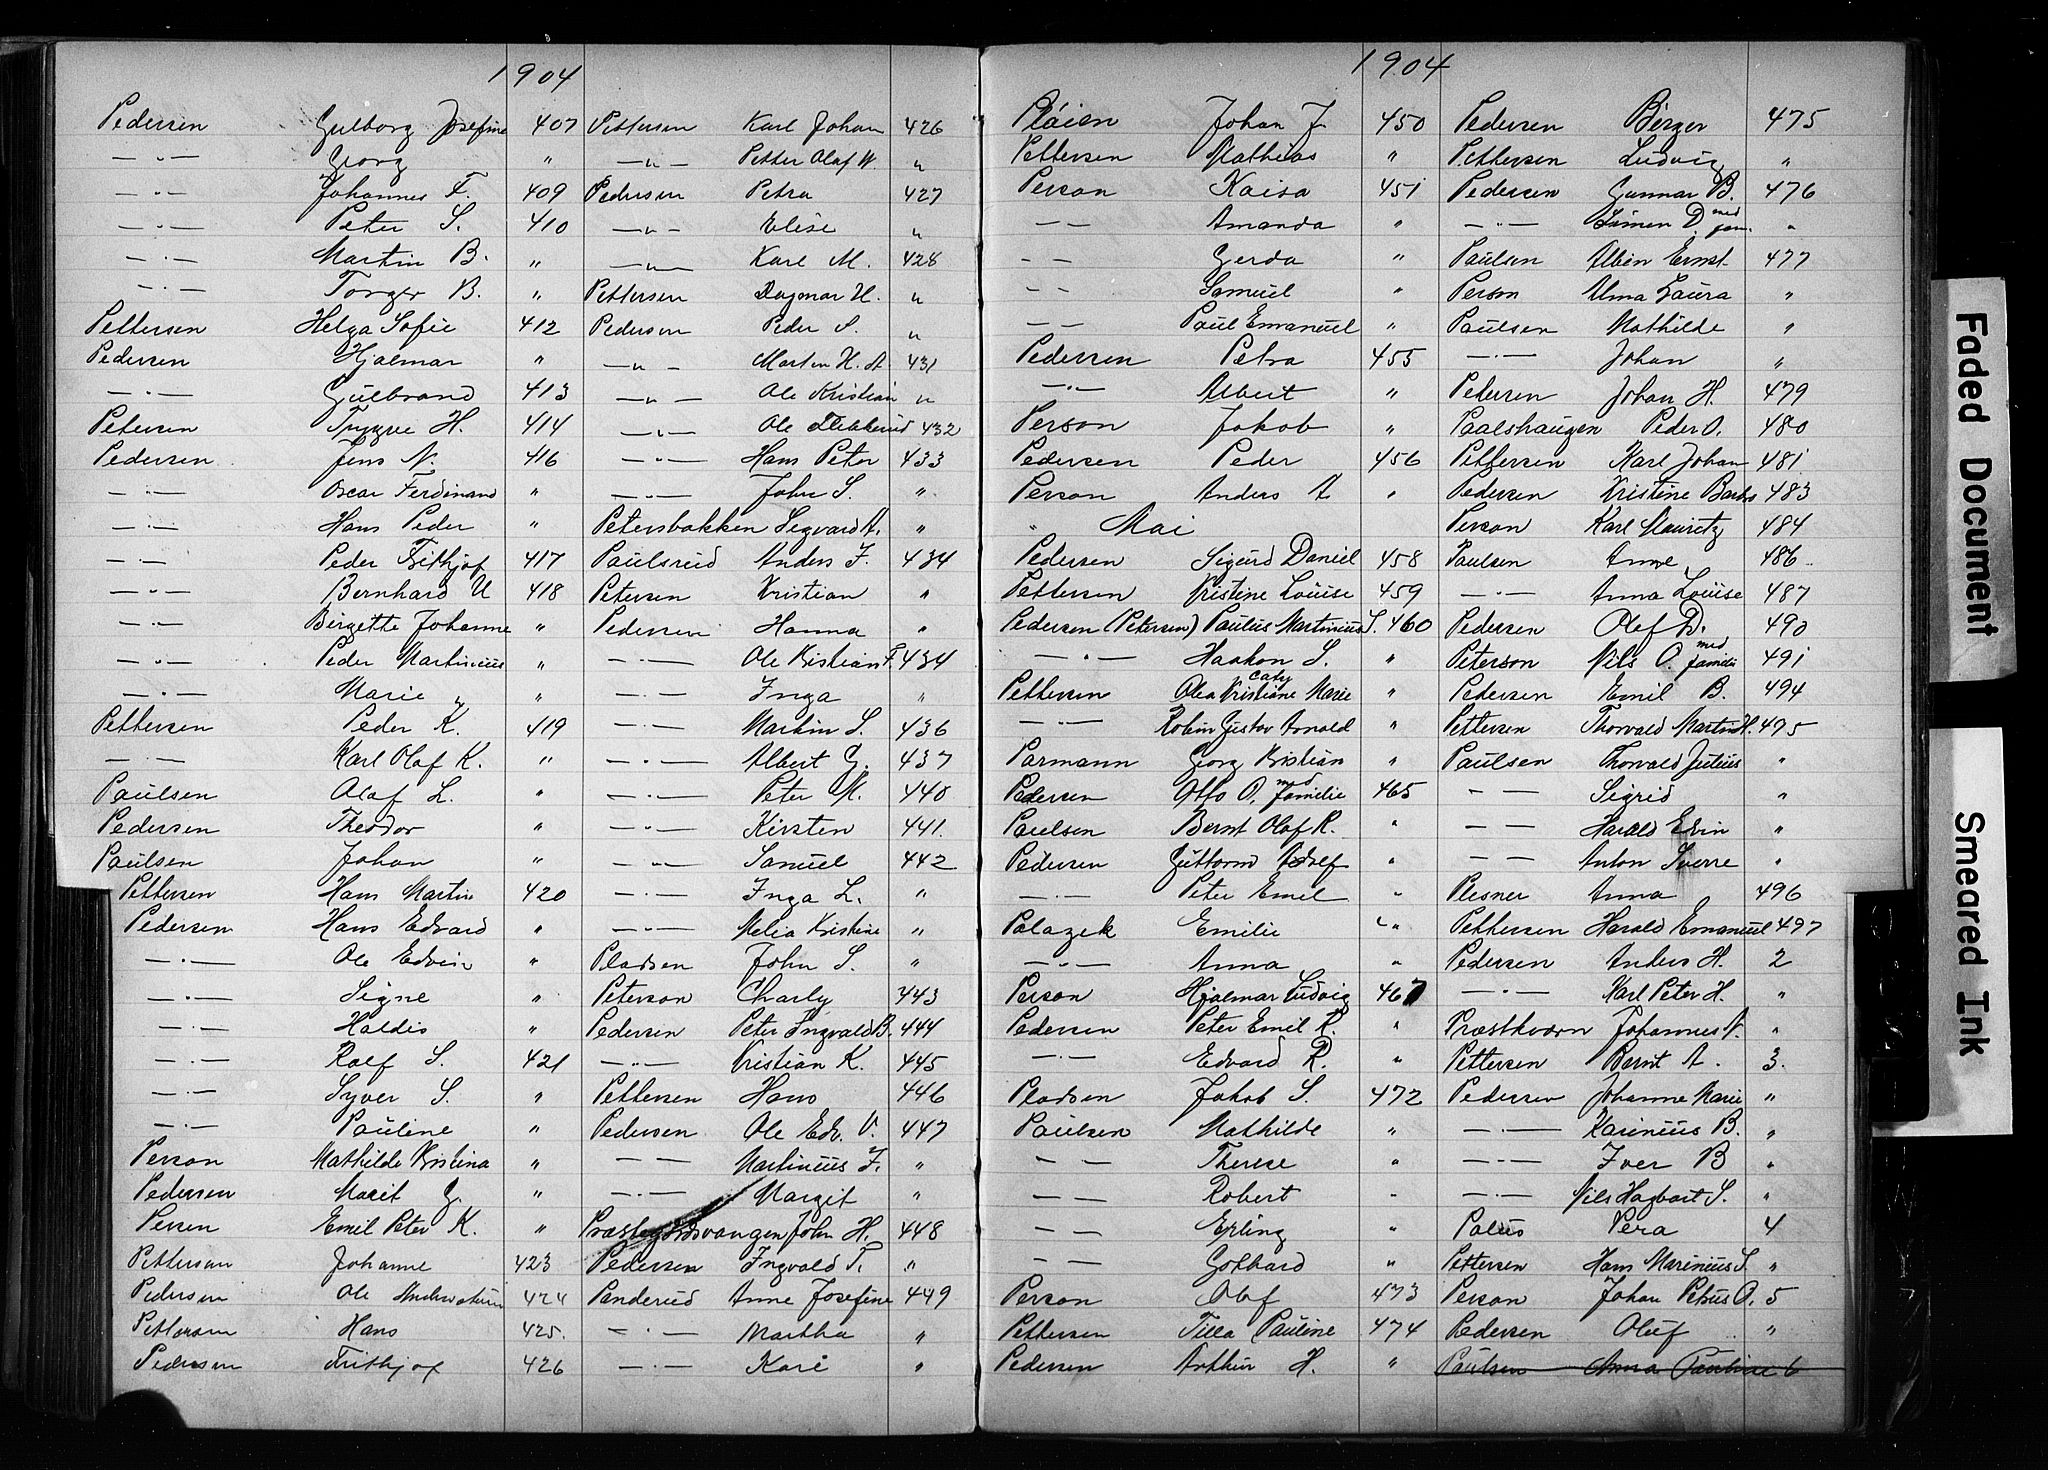 1904
Pedersen Gulborg Josefine 407
— " — Georg "
— " — Johannes F. 409
— " — Peter S. 410
— " — Martin B. "
— " — Torger B. "
Pettersen Helga Sofie 412
Pedersen Hjalmar "
— " — Gulbrand 413
Petersen Trygve H. 414
Pedersen Jens N. 416
— " — Oscar Ferdinand "
— " — Hans Peder "
— " — Peder Frithjof 417
— " — Bernhard U 418
— " — Birgitte Johanne "
— " — Peder Martinius "
— " — Marie "
Pettersen Peder K. 419
— " — Karl Olaf K. "
Paulsen Olaf L. "
Pedersen Theodor "
Paulsen Johan "
Pettersen Hans Martin 420
Pedersen Hans Edvard "
— " — Ole Edvin "
— " — Signe "
— " — Haldis "
— " — Rolf S. 421
— " — Syver S. "
— " — Pauline "
Person Mathilde Kristina "
Pedersen Marit G. "
Persen Emil Peter K. "
Pettersen Johanne 423
Pedersen Ole 424
Pettersen Hans 425.
Pedersen Frithjof 426
Pettersen Karl Johan 426
— " — Petter Olaf W. "
Pedersen Petra 427
— " — Elise "
— " — Karl M. 428
Pettersen Dagmar H. "
Pedersen Peder S. "
— " — Morten H. A. 431
— " — Ole Kristian "
— " — Ole 432
— " — Hans Peter 433
— " — John S. "
Petersbakken Segvard A. "
Paulsrud Anders F. 434
Petersen Kristian "
Pedersen Hanna "
— " — Ole Kristian F. 434
— " — Inga "
— " — Martin S. 436
— " — Albert G. 437
— " — Peter M. 440
— " — Kirsten 441.
— " — Samuel 442
— " — Inga L. "
— " — Melia Kristine "
Pladsen John S. "
Peterson Charly 443
Pedersen Peter Ingvald B. 444
— " — Kristian K. 445
Pettersen Hans 446
Pedersen Ole Edv. O. 447
— " — Martinius F. "
— " — Margit "
Præstegårdsvangen John H. 448
Pedersen Ingvald T. "
Panderud Anne Josefine 449
— " — Martha "
— " — Kari "
1904
Pláien Johan J. 450
Pettersen Mathias "
Person Kaisa 451
— — Amanda "
— — Gerda "
— — Samuel "
— — Paul Emanuel "
Pedersen Petra 455
— " — Albert "
Person Jakob "
Pedersen Peder 456
Person Anders A "
" Mai
Pedersen Sigurd Daniel 458
Pettersen Kristine Louise 459
Pedersen (Petersen) Paulus Martinius S. 460
— " — Haakon S. "
Pettersen Olea Kristiane Caty Marie "
— " — Robin Gustav Arnold "
Parmann Georg Kristian "
Pedersen Otto O. med familie 465
Paulsen Bernt Olaf R. "
Pedersen Guttorm Adolf "
— " — Peter Emil "
Palazek Emilie "
— " — Anna "
Person Hjalmar Ludvig 467
Pedersen Peter Emil R. "
— " — Edvard R. "
Pladsen Jakob S. 472
Paulsen Mathilde "
— — Therese "
— — Robert "
— — Erling "
— — Gothard "
Person Olaf 473
Pettersen Tilla Pauline 474
Pedersen Arthur H. "
Pedersen Birger 475
Pettersen Ludvig "
Pedersen Gunnar B. 476
— " — Simen D. med fam. "
Paulsen Albin Ernst 477
Person Alma Laura "
Paulsen Mathilde "
— " — Johan "
Petersen Johan H. 479
Paalshaugen Peder O. 480
Pettersen Karl Johan 481
Pedersen Kristine 483
Person Karl Mauritz 484
Paulsen Anne 486
— " — Anna Louise 487
Pedersen Olaf D. 490
Peterson Nils O. med familie 491
Pedersen Emil B. 494
Pettersen Thorvald Martin H. 495
Paulsen Thorvald Julius "
— — Sigrid "
— — Harald Edvin "
— — Anton Sverre "
Plesner Anna 496
Pettersen Harald Emanuel 497
Pedersen Anders H. 2
— " — Karl Peter H. "
Præstkværn Johannes A. "
Pettersen Bernt A. 3.
Pedersen Johanne Marie "
— " — Karinius B. "
— " — Iver B "
— " — Nils Hagbart S. "
Palus Vera 4
Pettersen Hans Marinius S. "
Person Johan Petrus O. 5
Pedersen Oluf "
Paulsen Anna Pauline 6
Faded Document
Smeared Ink